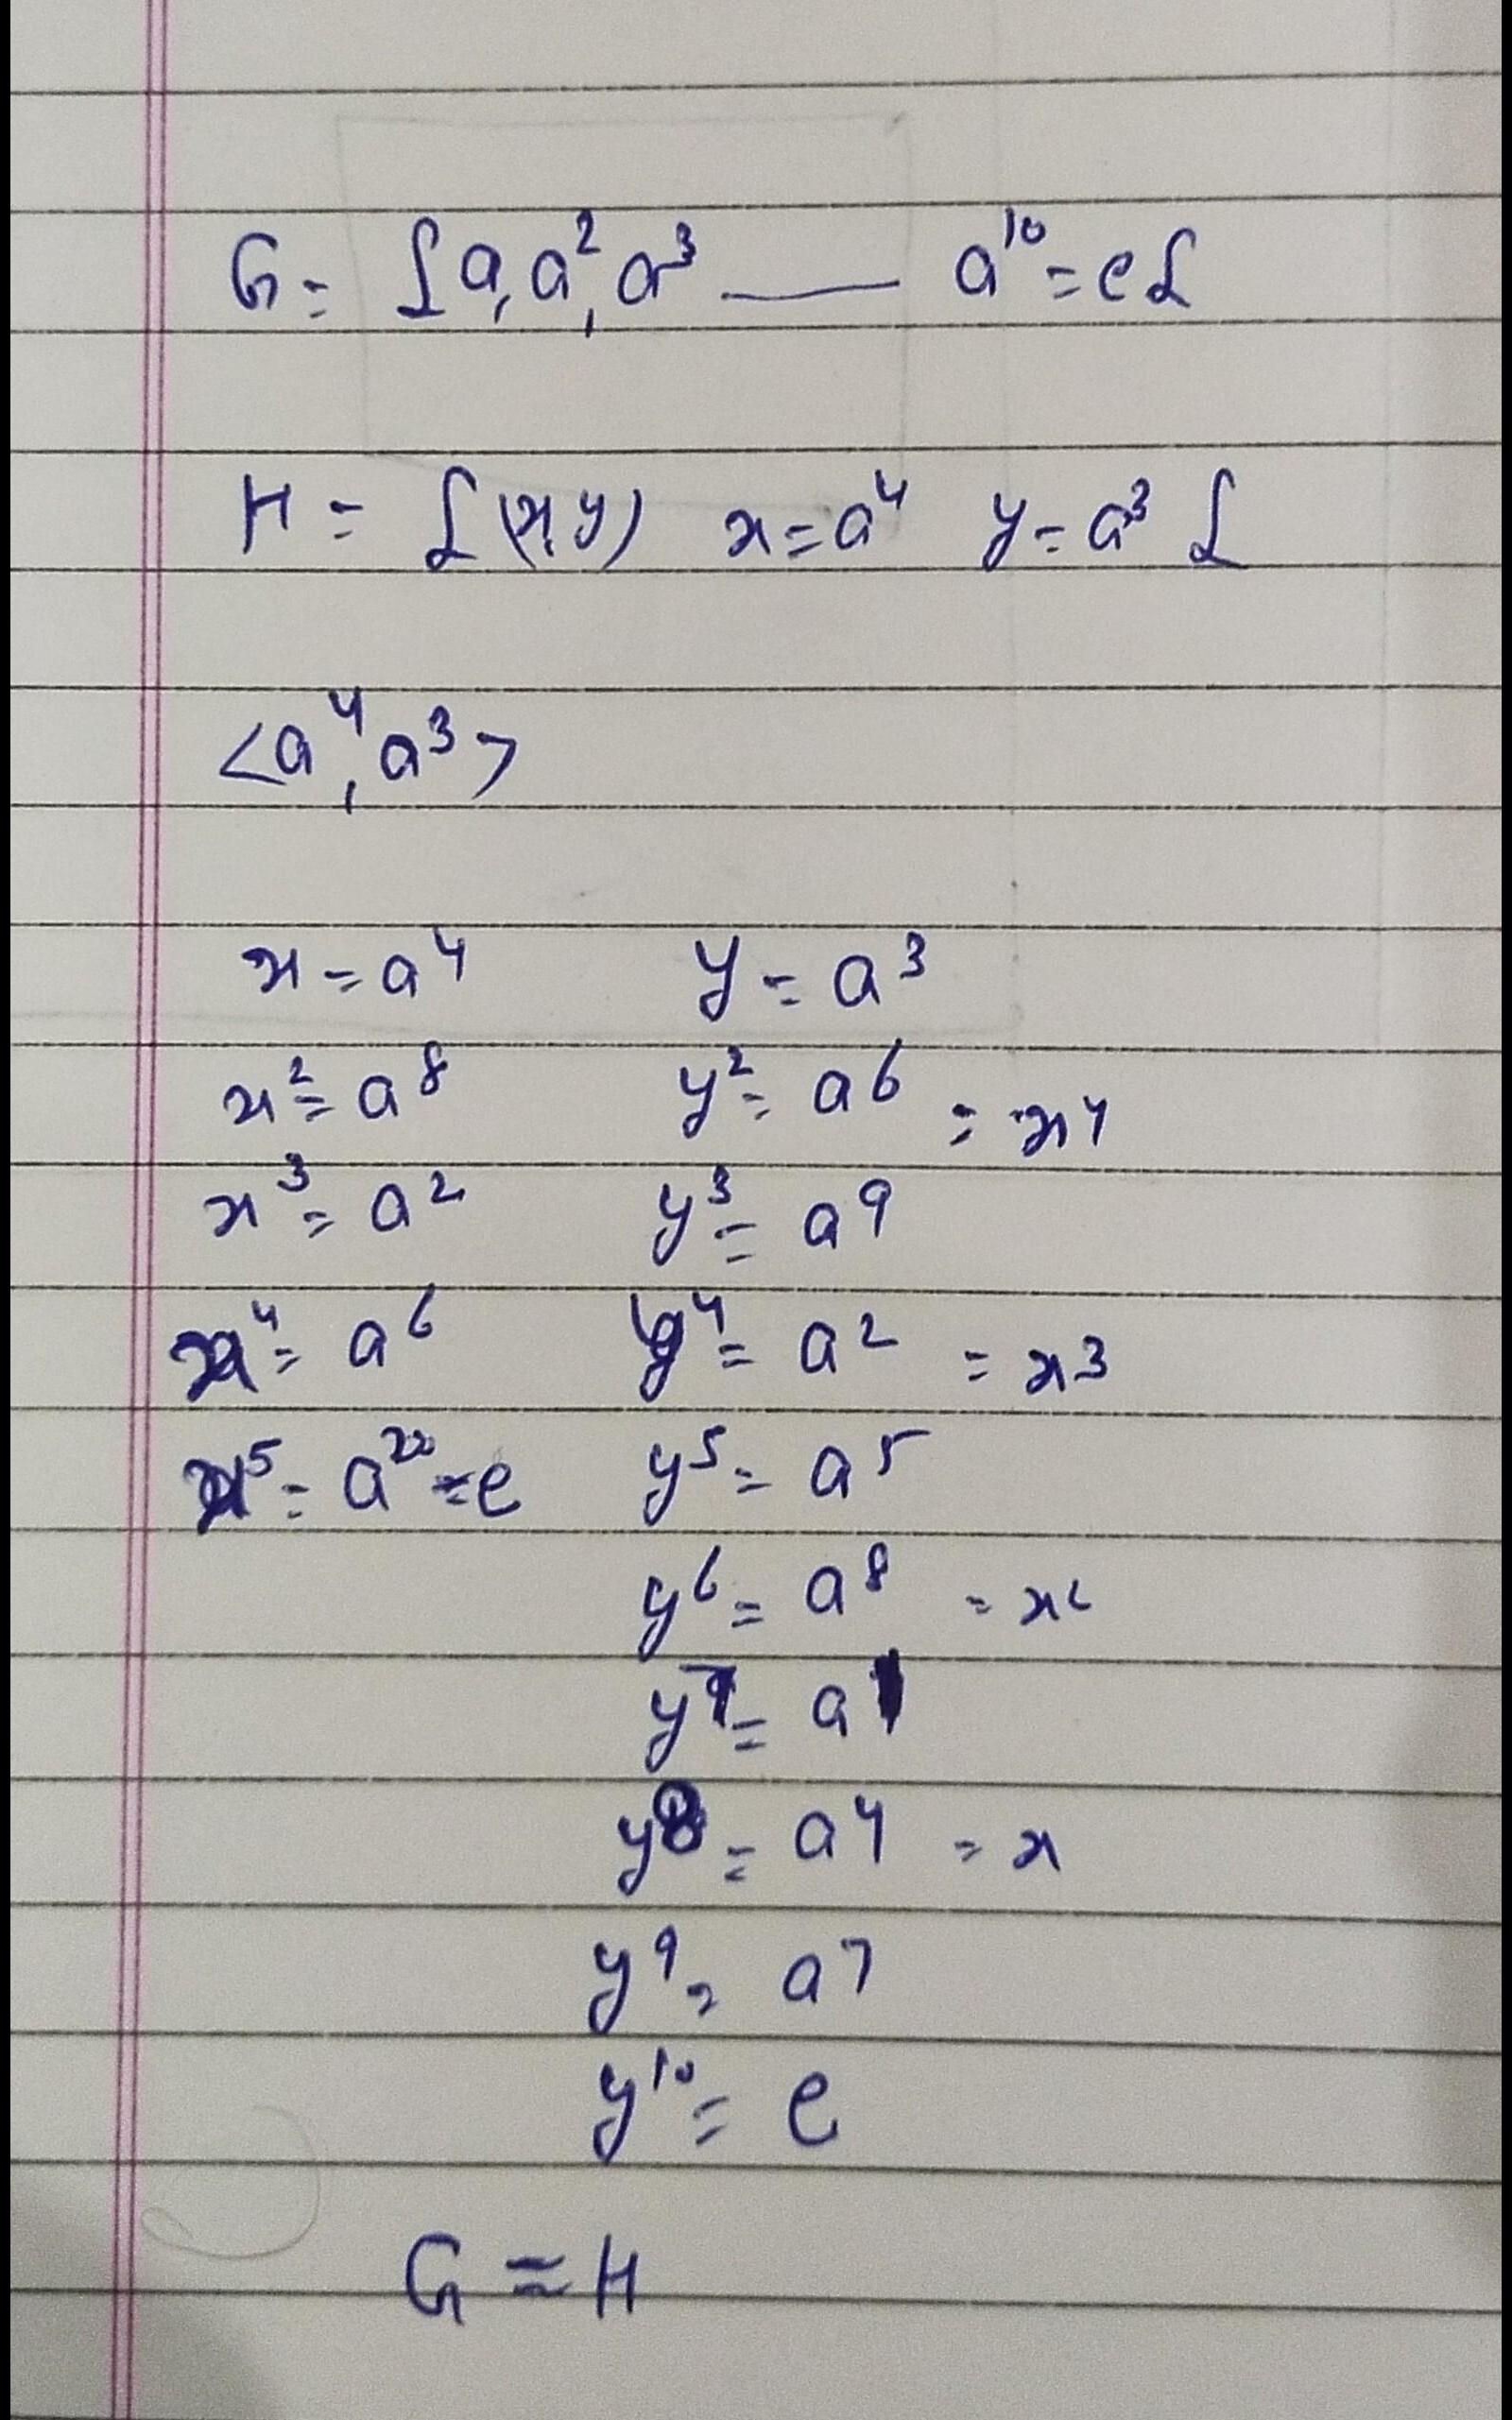 G = { a, a², a³ —— a¹⁰ = e }
H = { (x, y) x = a⁴ y = a³ }
<a⁴, a³>
x = a⁴ y = a³
x² = a⁸ y² = a⁶ = x⁴
x³ = a² y³ = a⁹
x⁴ = a⁶ y⁴ = a² = x³
x⁵ = a²⁰ = e y⁵ = a⁵
y⁶ = a⁸ = x²
y⁷ = a¹
y⁸ = a⁴ = x
y⁹ = a⁷
y¹⁰ = e
G = H